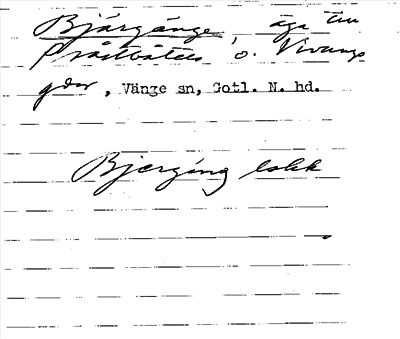 Bjärgänge, äga till
Prästbåtels o. Vivungs
gdar, Vänge sn, Gotl. N. hd.
Bjerging lokk